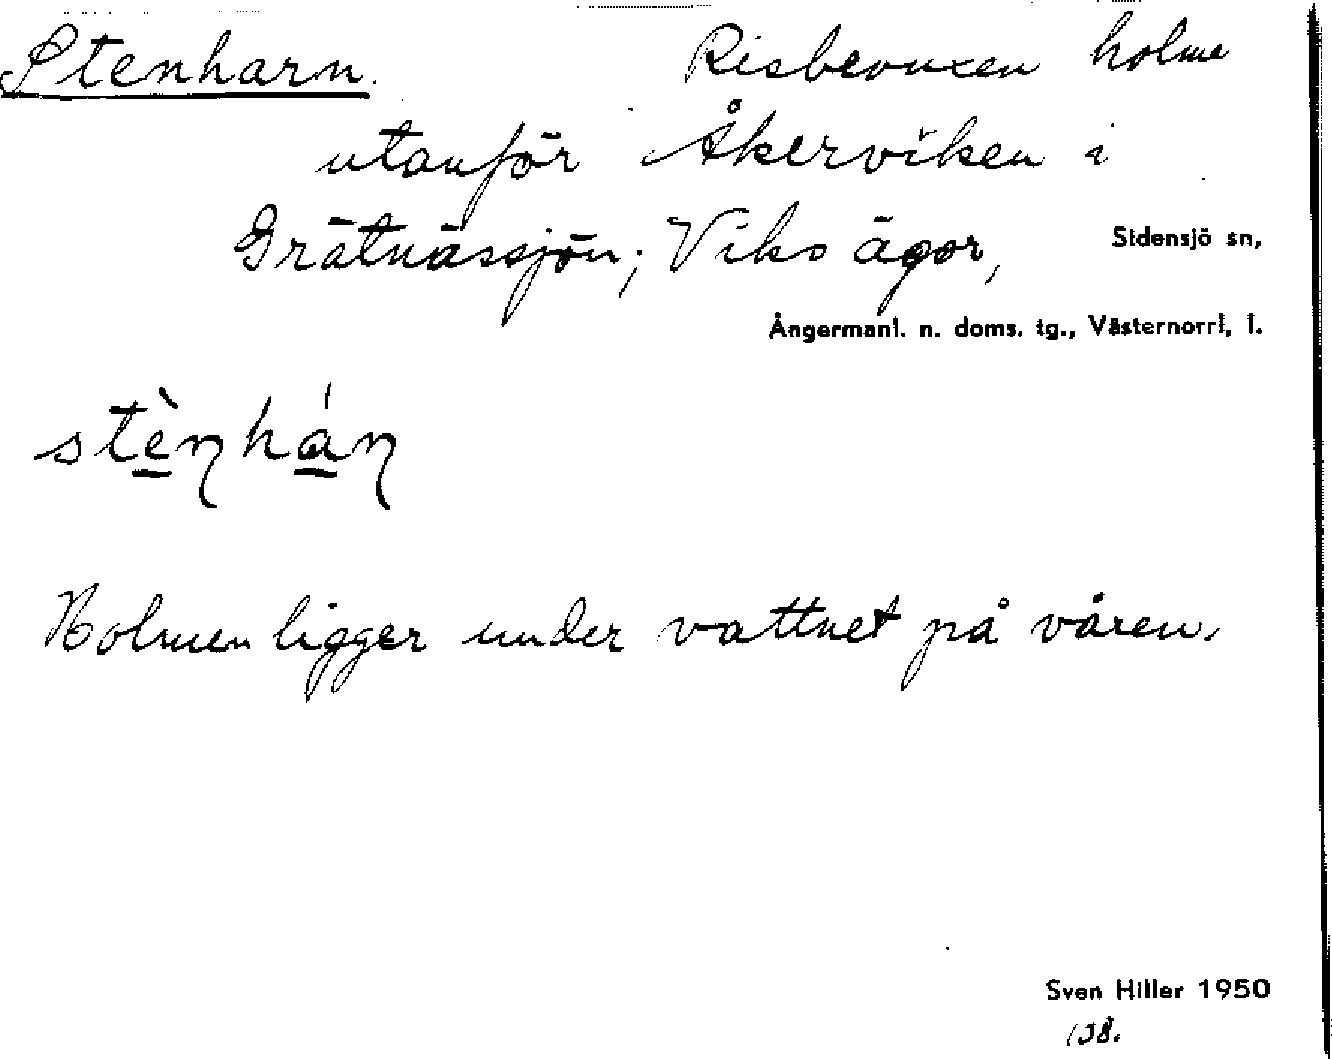 Stenharn. Risbevuxen holme
utanför Åkerviken i
Grätnässjön; Viks ägor, Sidensjö sn,
Ångermanl. n. doms. tg., Västernorrl. l.
stèn̥hán̥
Holmen ligger under vattnet på våren.
Sven Hiller 1950